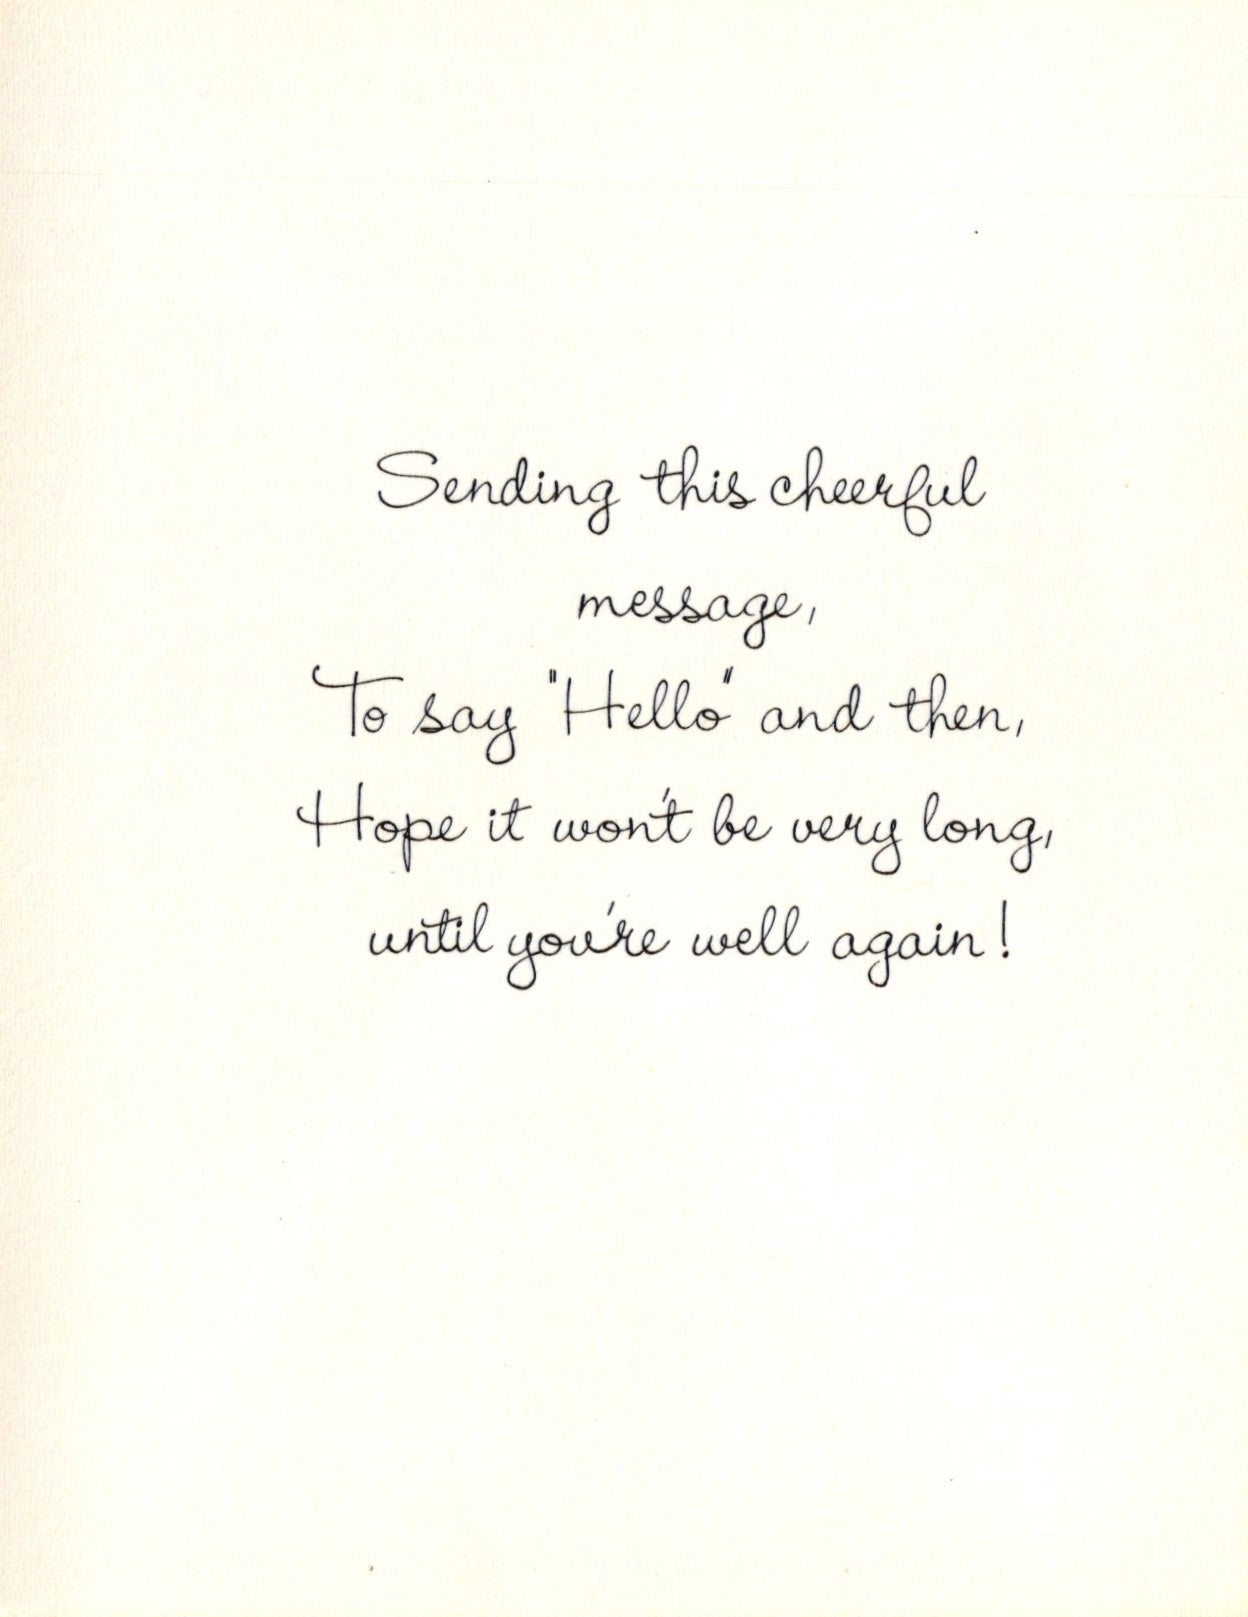 Sending this cheerful
message,
To say "Hello" and then,
Hope it won't be very long,
until you're well again!